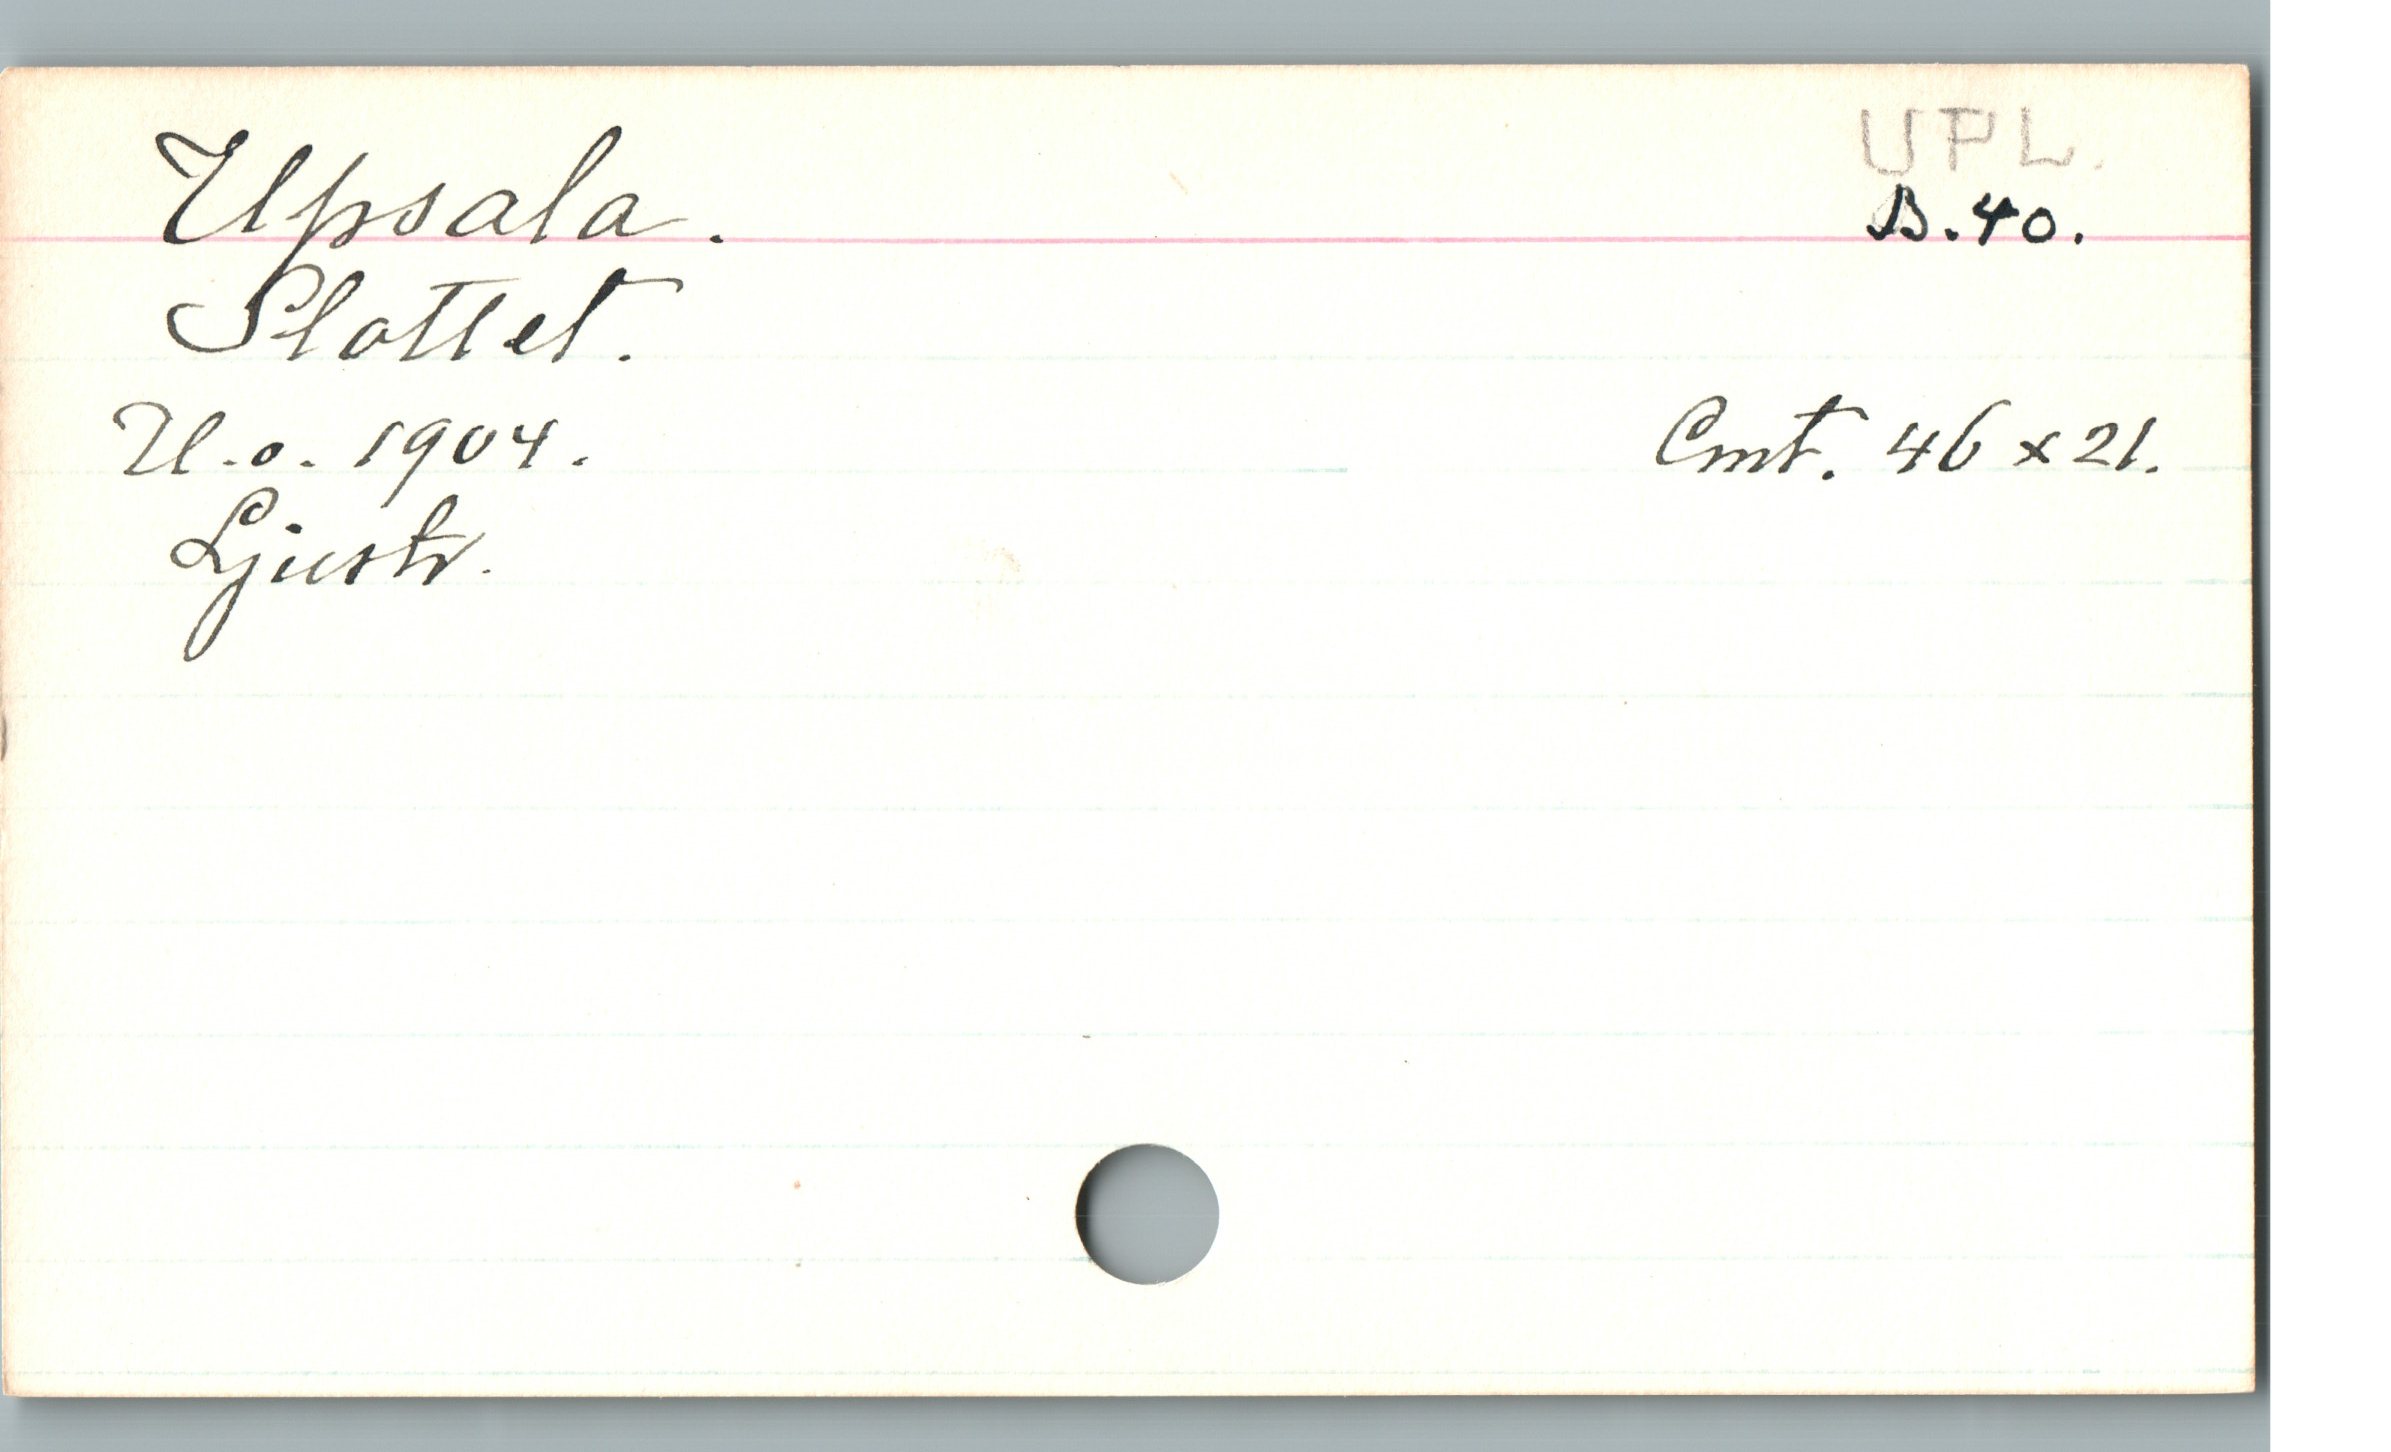 UPL.
Upsala. B.40.
Slottet.
U.o. 1904. Cmt. 46 x 21.
Ljustr.